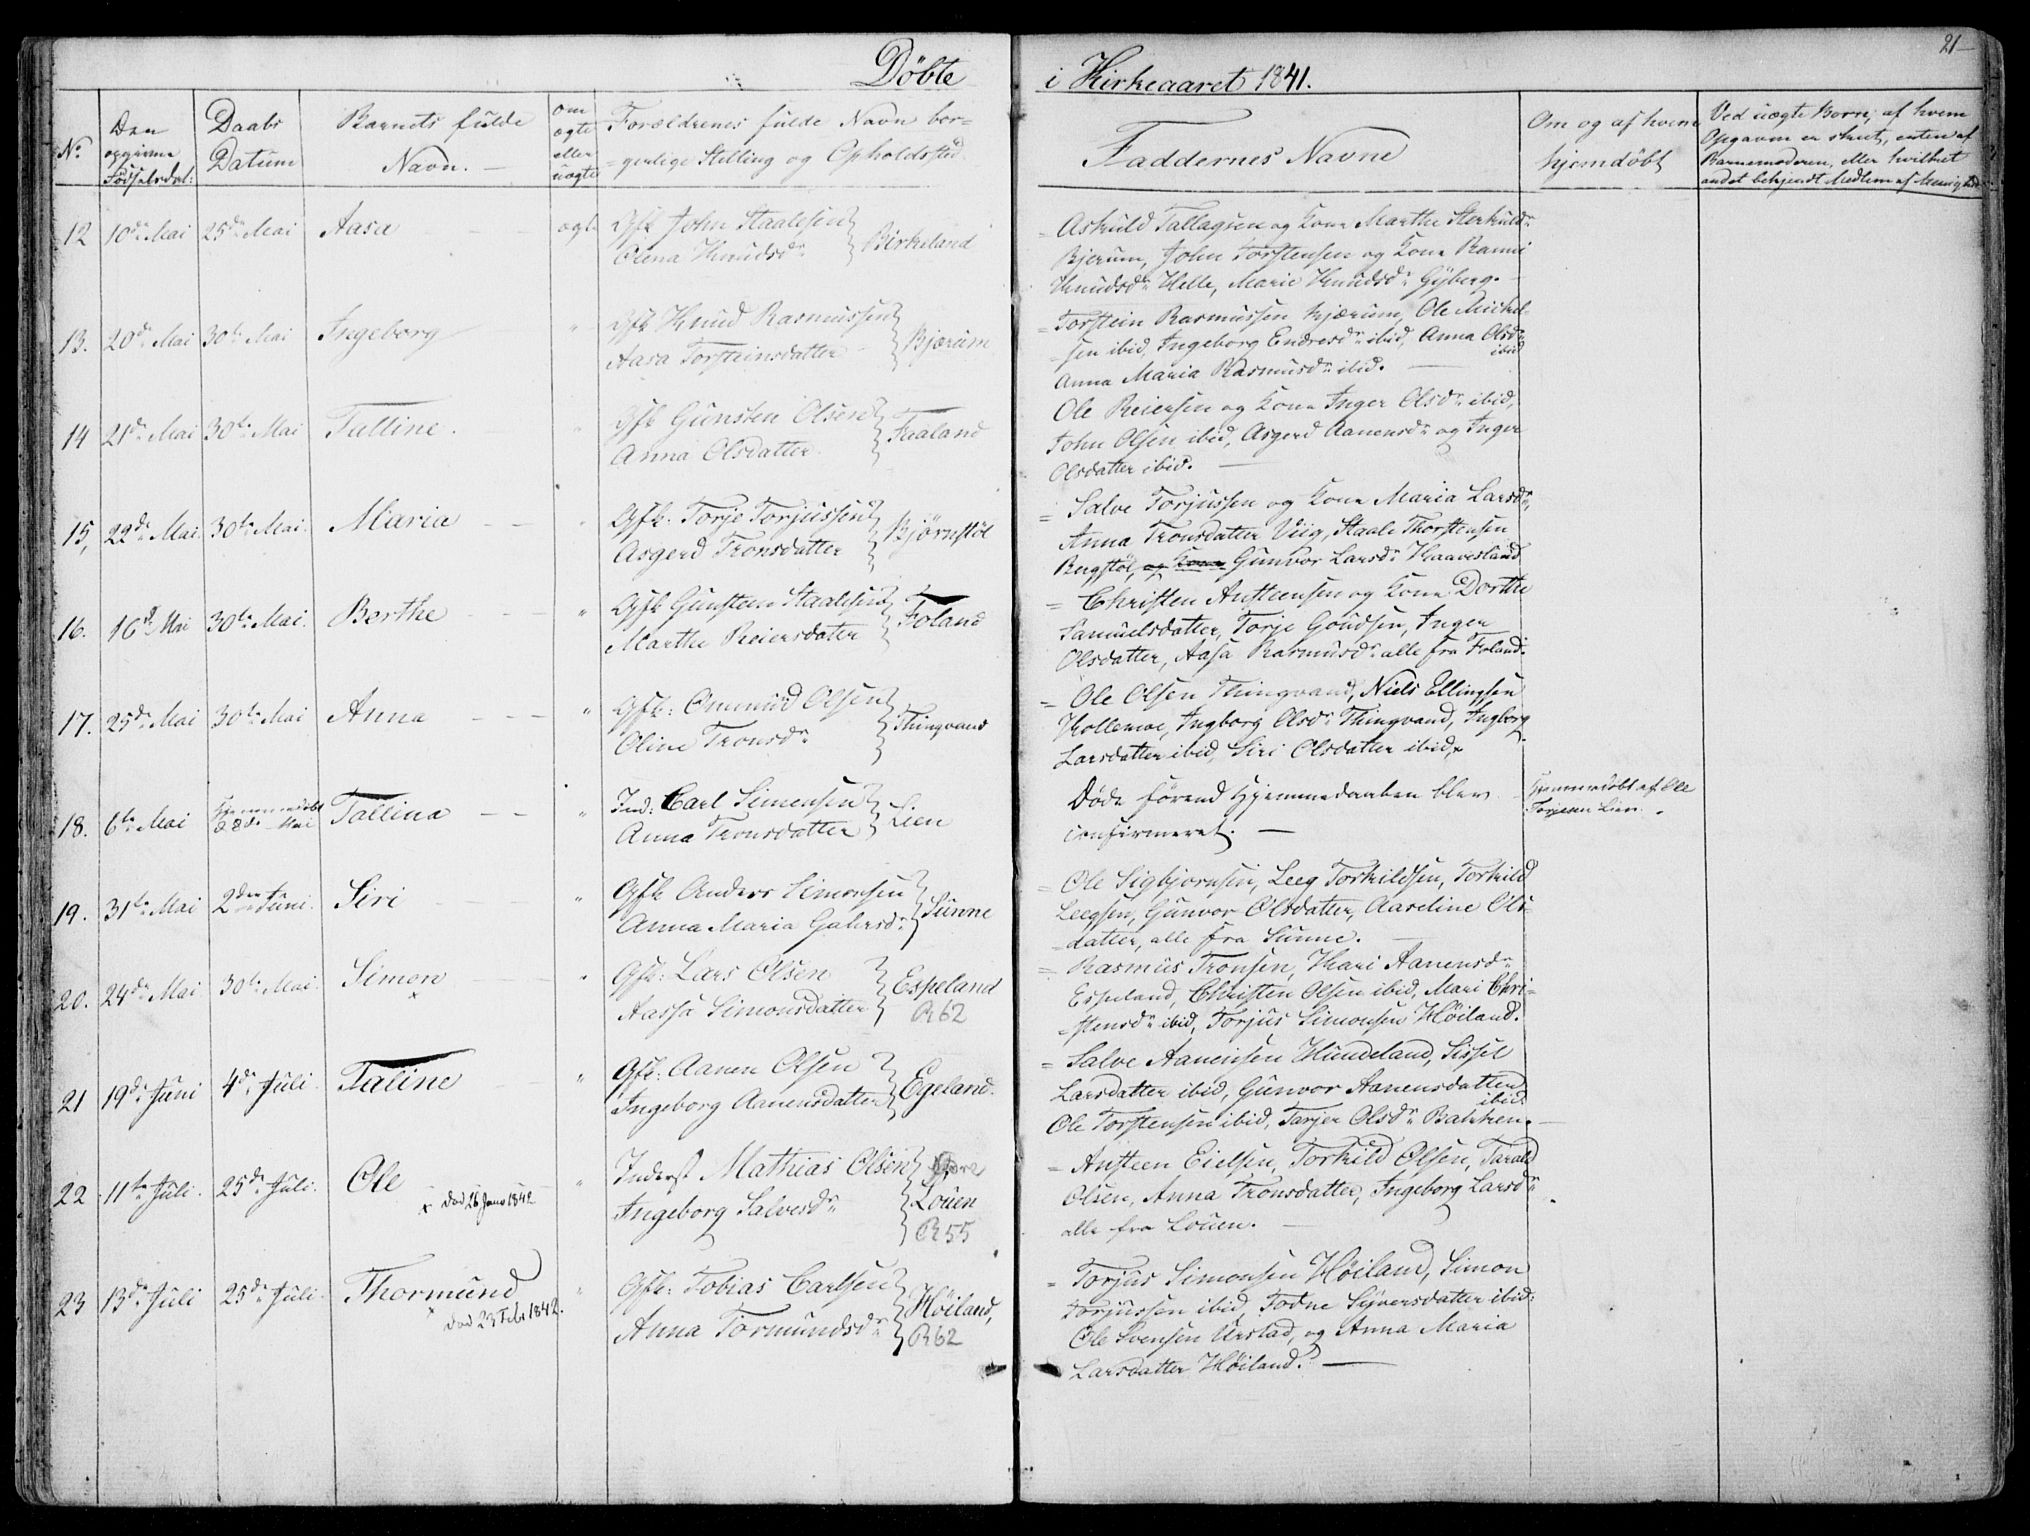 Døbte
i Kirkeaaret 1841.
21
No
Den opgivne Fødselsdat:
Daabs Datum
Barnets fulde Navn.
om ægte eller uægte
Forældrenes fulde Navn bor-
gerlige Stilling og Opholdsted
Faddernes Navne
Om og af hvem
hjemdøbt
Ved uægte Børn, af hvem
Opgaven er skeet, enten af
Barnemoderen, eller hvilket
andet bekjendt Medlem af Menighed
12 10de Mai 25de Mai Aasa ægte Gfk John Staalesen
Olena Knudsdr Birkeland
Askuld Tallagsen og Kone Marthe Sterkuldr
Bjerum, John Torstensen og Kone Ranni
Knudsdr Helle, Marie Knudsdr Gyberg.
13. 20de Mai 30te Mai Ingeborg " Gfk Knud Rasmussen
Aasa Torsteinsdatter Bjærum
Torstein Rasmussen Bjærum, Ole Michel-
sen ibid, Ingeborg Endresdr ibid, Anna Olsdr
ibid
Anna Maria Rasmusdr ibid.
14 21de Mai 30te Mai Talline. " Gfk Gunsten Olsen
Anna Olsdatter. Faaland
Ole Reiersen og Kone Inger Olsdr ibid,
John Olsen ibid, Asgerd Aanensdr og Inger
Olsdatter ibid.
15, 22de Mai. 30te Mai. Maria " Gfk: Torje Torjussen
Asgerd Tronsdatter Bjørnstøl
Salve Torjussen og Kone Maria Larsdr,
Anna Tronsdatter Viig, Staale Thorstensen
Bergstøl, og Kone Gunvor Larsdr Haavesland
16. 16de Mai 30te Mai. Berthe " Gfk Gunsten Staalesen
Marthe Reiersdatter Foland
Christen Anstensen og Kone Dorthe
Samuelsdatter, Torje Goudsen, Inger
Olsdatter, Aasa Rasmusdr alle fra Foland.
17. 25de Mai 30te Mai Anna " Gfk: Ommund Olsen
Oline Tronsdr Thingvand
Ole Olsen Thingvand, Niels Ellingsen
Kollemoe, Ingborg Olsdr Thingvand, Ingborg
Larsdatter ibid, Siri Olsdatter ibid,
18. 6te Mai Hjemmedøbt 28de Mai Tallina " Ind: Carl Simensen
Anna Tronsdatter Lien
Døde førend Hjemmedaaben blev
confirmeret.
Hjemmedøbt af Ole
Torjesen Lien.
19. 31te Mai 2den Juni. Siri " Gfk Anders Simonsen
Anna Maria Gabrsdr Sunne
Ole Sigbjørnsen, Leeg Torkildsen, Torkild
Leegsen, Gunvor Olsdatter, Aaseline Ols-
datter, alle fra Sunne.
20. 24de Mai 30te Mai. Simon x " Gfk: Lars Olsen
Aassa Simonsdatter Espeland
R62
Rasmus Tronsen, Kari Aanensdr
Espeland, Christen Olsen ibid, Mari Chri-
stensdr ibid, Torjus Simonsen Høiland.
21 19de Juni 4de Juli. Taline " Gfk: Aanen Olsen
Ingeborg Aanensdatter Egeland.
Salve Aanensen Hundeland, Sissel
Larsdatter ibid, Gunvor Aanensdatter
ibid.
Ole Torstensen ibid, Tarjer Olsdr Bakken.
22 11te Juli. 25de Juli. Ole " Inderst Mathias Olsen
x Død 26 Janr 1842
Ingeborg Salvesdr Louen
R55
Ansteen Eielsen, Torkild Olsen, Tarald
Olsen, Anna Tronsdatter, Ingeborg Larsdr
alle fra Louen.
23 13de Juli 25de Juli. Thormund " Gfk: Tobias Carlsen
x Død 23 Febr 1842.
Anna Tormundsdr Høiland,
R62
Torjus Simonsen Høiland, Simon
Torjussen ibid, Todne Syversdatter ibid:
Ole Svensen Urstad, og Anna Maria
Larsdatter Høiland.